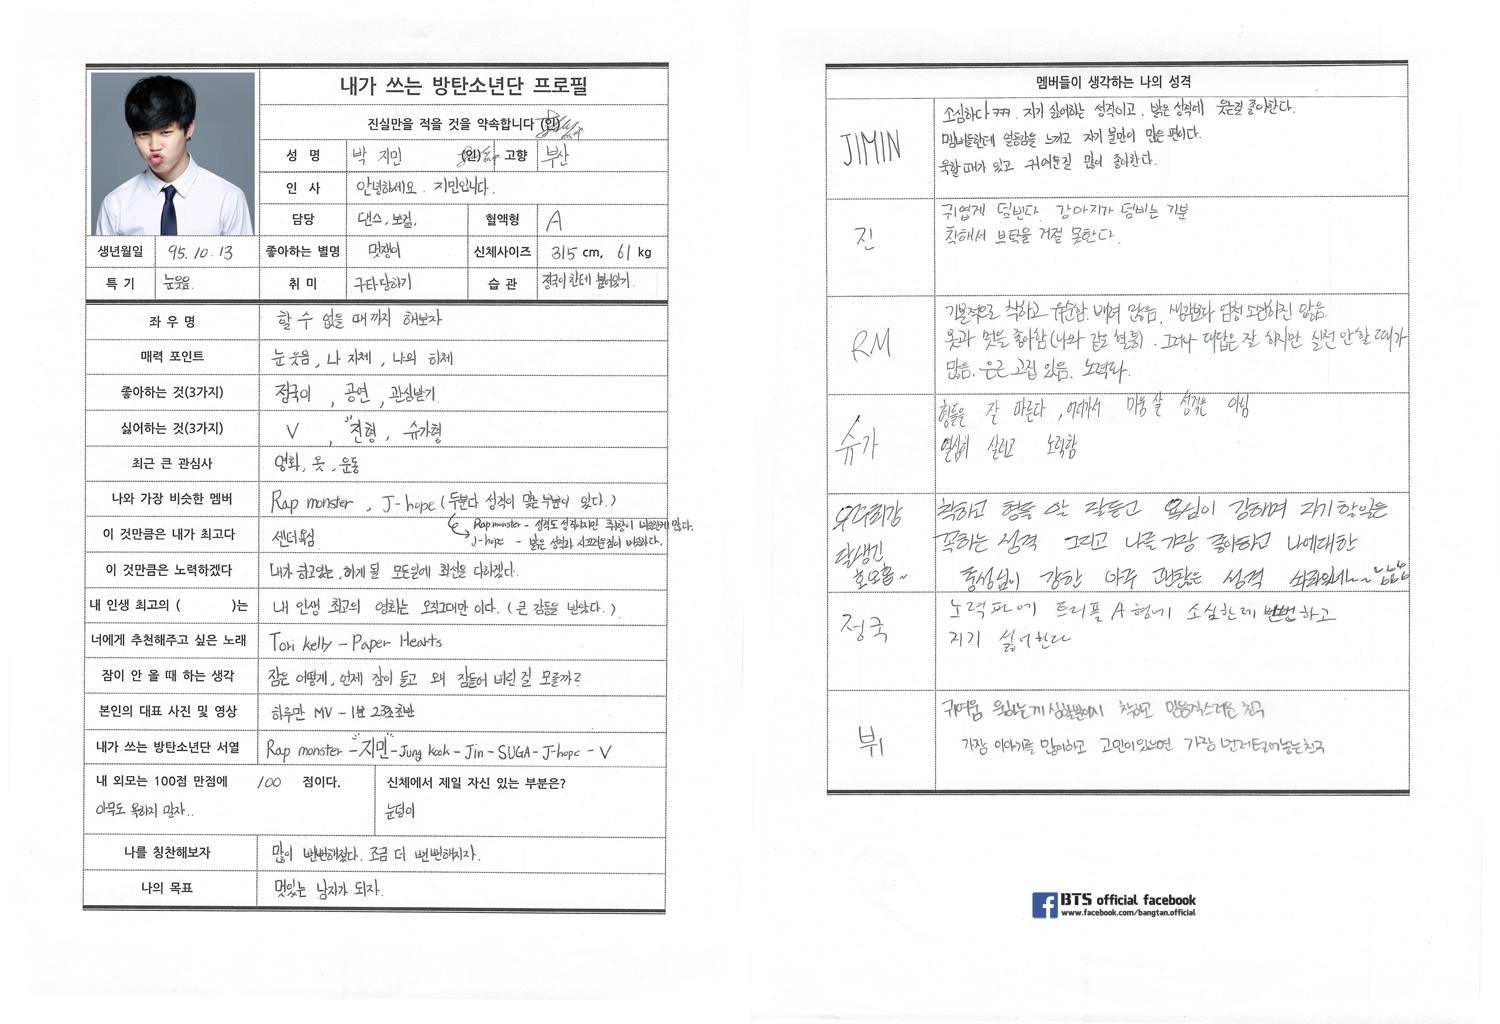 내가 쓰는 방탄소년단 프로필
진실만을 적을 것을 약속합니다 (인)
성 명 박 지민 (인) 고향 부산
인 사 안녕하세요. 지민입니다.
담당 댄스, 보컬. 혈액형 A
생년월일 95. 10. 13 좋아하는 별명 멋쟁이 신체사이즈 315 cm, 61 kg
특 기 눈웃음. 취 미 구타당하기 습 관 정국이한테 붙어있기.
좌 우 명 할 수 없을 때까지 해보자
매력 포인트 눈웃음, 나 자체, 나의 하체
좋아하는 것(3가지) 정국이, 공연, 관심받기
싫어하는 것(3가지) V, "진형, 슈가형
최근 큰 관심사 영화, 옷, 운동
나와 가장 비슷한 멤버 Rap monster, J-hope (두분다 성격이 맞는 부분이 있다.)
Rap monster - 성격도 성격이지만 취향이 비슷한게 많다.
이 것만큼은 내가 최고다 센터욕심
J-hope - 밝은 성격과 시끄러운점이 비슷하다.
이 것만큼은 노력하겠다 내가 하고있는, 하게 될 모든일에 최선을 다하겠다.
내 인생 최고의 ( )는 내 인생 최고의 영화는 오직그대만 이다. (큰 감동을 받았다.)
너에게 추천해주고 싶은 노래 Tori kelly - Paper Hearts
잠이 안 올 때 하는 생각 잠은 어떻게, 언제 잠이 들고 왜 잠들어 버린 걸 모를까?
본인의 대표 사진 및 영상 하루만 MV - 1분 23초초반
내가 쓰는 방탄소년단 서열 Rap monster - "지민" - Jung kook - Jin - SUGA - J-hope - V
내 외모는 100점 만점에 100 점이다. 신체에서 제일 자신 있는 부분은?
아무도 욕하지 말자.. 눈덩이
나를 칭찬해보자 많이 뻔뻔해졌다. 조금 더 뻔뻔해지자.
나의 목표 멋있는 남자가 되자.
멤버들이 생각하는 나의 성격
JIMIN
소심하다 ㅋㅋㅋ. 지기 싫어하는 성격이고, 밝은 성격에 웃는걸 좋아한다.
멤버들한테 열등감을 느끼고 자기 불만이 많은 편이다.
욱할때가 있고 귀여운걸 많이 좋아한다.
진
귀엽게 덤빈다. 강아지가 덤비는 기분
착해서 부탁을 거절 못한다.
RM
기본적으로 착하고 유순함. 배려 많음. 생각보다 엄청 소심하진 않음
옷과 멋을 좋아함(나와 같은 현통). 그러나 대답은 잘 하지만 실천 안할 때가
많음. 은근 고집 있음. 노력파.
슈가
형들을 잘 따른다, 어디가서 미움 살 성격은 아님
열심히 살고 노력함
달생긴
호오홉~
착하고 형들 말 잘듣고 욕심이 강하며 자기 할일은
꼭하는 성격 그리고 나를 가장 좋아하고 나에대한
충성심이 강한 아주 괜찮은 성격
정국
노력파에 트리플 A형에 소심한데 뻔뻔하고
지기 싫어한다
뷔
귀여움 착하고 믿음직스러운 친구
가장 이야기를 많이하고 고민이있으면 가장 먼저 털어놓는친구
BTS official facebook
www.facebook.com/bangtan.official